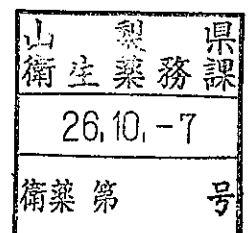 山梨県
衛生薬務課
26.10.-7
衛薬第 号